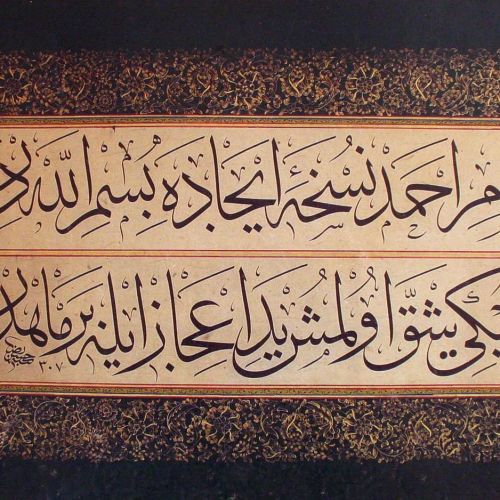 احمد نسخهٔ ایجاده بِسْمِ الله
شقّ اولمش ید اعجاز ایله بر ماهد
٣٠٧